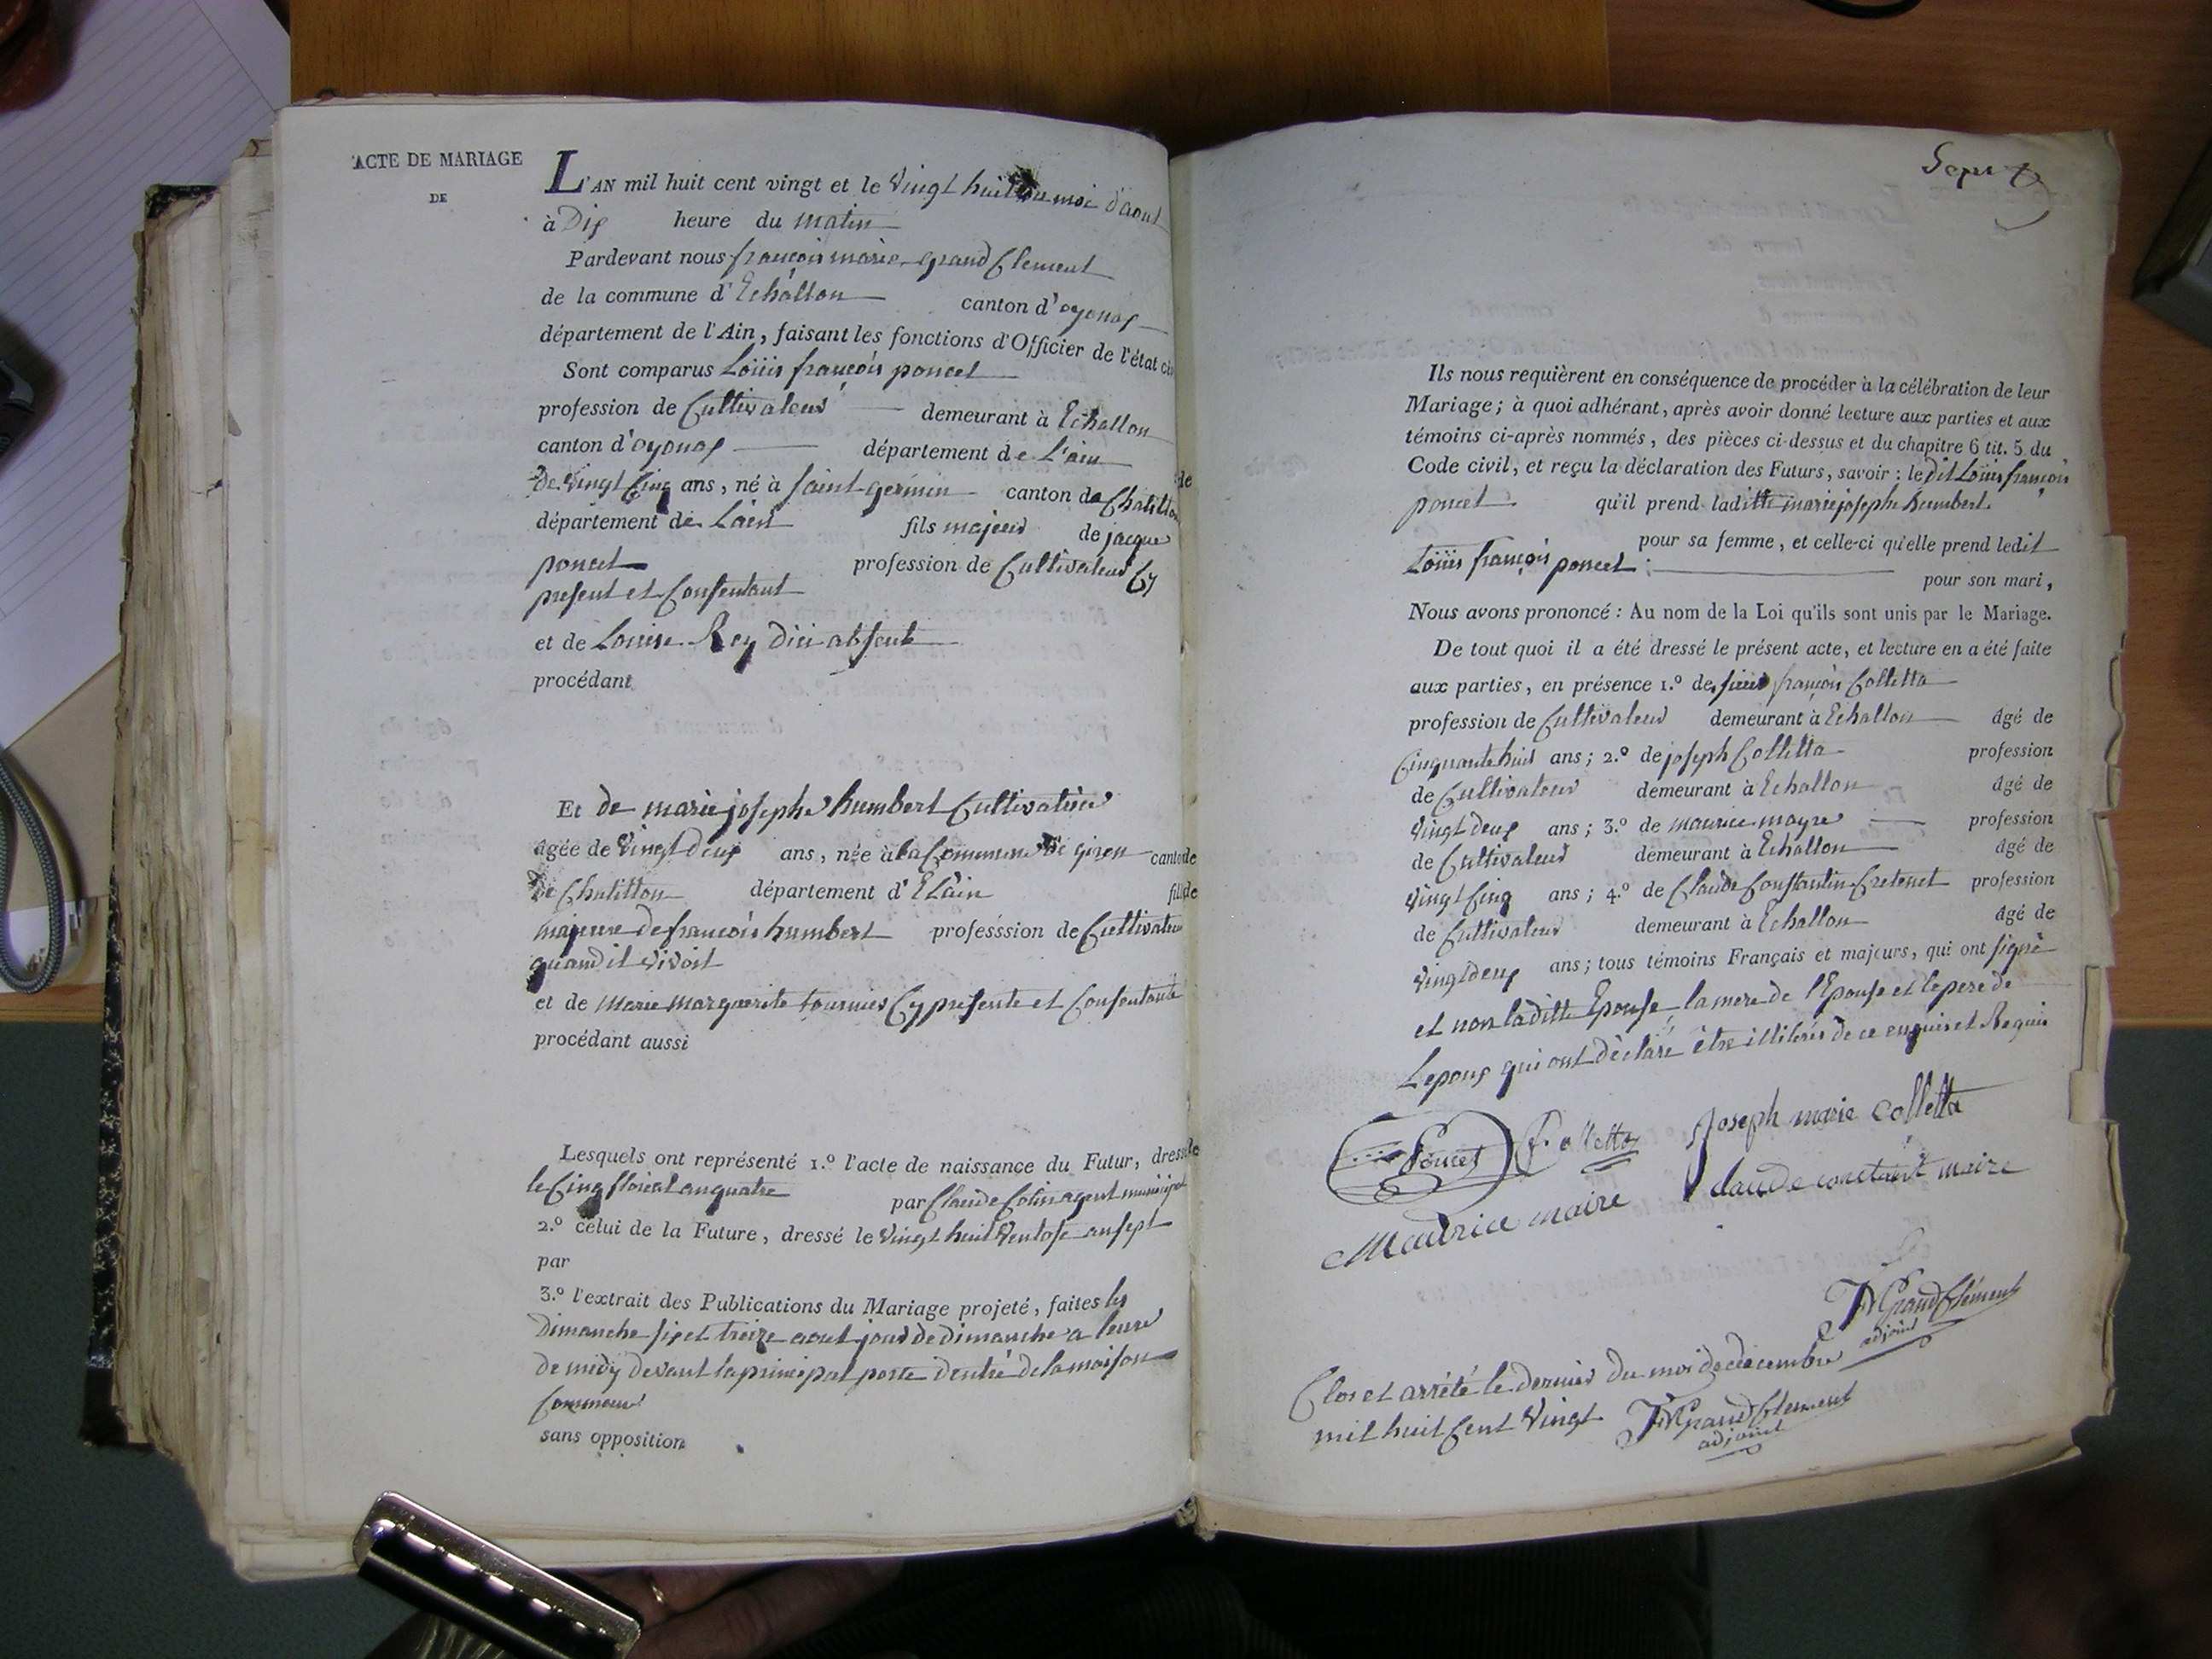 ACTE DE MARIAGE
DE
L'AN mil huit cent vingt et le vingt huit du moi d'aout
à Dix heure du matin
Pardevant nous françois marie grand Clement
de la commune d'Echallon canton d'oyonax
département de l'Ain, faisant les fonctions d'Officier de l'état civ
Sont comparus Loüis françois poncet
profession de Cultivateur demeurant à Echallon
canton d'oyonax département de L'ain
de vingt Cinq ans, né à saint germin canton de Chatillon
département de Lain fils majeur de jacque
poncet profession de Cultivateur Cy
present et Consentant
et de Louise Rey dici absente
procédant
Et de marie josephe humbert Cultivatrice
âgée de vingt deux ans, née à la Commune de giron canto
de Chatillon département d'E Lain fill
majeure de francois humbert professsion de Cultivateur
quand il vivoit
et de marie marguerite tournier Cy presente et Consentante
procédant aussi
Lesquels ont représenté 1.º l'acte de naissance du Futur, dressé
le Cinq floreal an quatre par Claude Colin agent municipal
2.º celui de la Future, dressé le vingt huit Ventose an sept
par
3.º l'extrait des Publications du Mariage projeté, faites les
Dimanche six et treize aout jour de Dimanche a leure
de midy devant la principal porte dentré de la maison
Commune
sans opposition
Sept
Ils nous requièrent en conséquence de procéder à la célébration de leur
Mariage; à quoi adhérant, après avoir donné lecture aux parties et aux
témoins ci-après nommés, des pièces ci-dessus et du chapitre 6 tit. 5 du
Code civil, et reçu la déclaration des Futurs, savoir : le dit Loüis françois
poncet qu'il prend laditte marie josephe humbert
pour sa femme, et celle-ci qu'elle prend ledit
Loüis françois poncet : pour son mari,
Nous avons prononcé : Au nom de la Loi qu'ils sont unis par le Mariage.
De tout quoi il a été dressé le présent acte, et lecture en a été faite
aux parties, en présence 1.º de françois Colletta
profession de Cultivateur demeurant à Echallon âgé de
Cinquante huit ans; 2.º de joseph Colletta profession
de Cultivateur demeurant à Echallon âgé de
vingt deux ans; 3.º de maurice mayre profession
de Cultivateur demeurant à Echallon âgé de
vingt Cinq ans; 4.º de Claude Constantin Cretenet profession
de Cultivateur demeurant à Echallon âgé de
vingt deux ans; tous témoins Français et majeurs, qui ont signé
et non laditte Epouse, la mere de l'Epouse et le pere de
Lepoux qui ont déclaré être illiterés de ce enquis et Requis
Poncet F. olletta Joseph marie colletta
Maurice maire claude constant maire
FM Grand Clément
adjoint
Clos et arrété le dernier du moi de decembre
mil huit Cent Vingt FM Grand Clement
adjoint